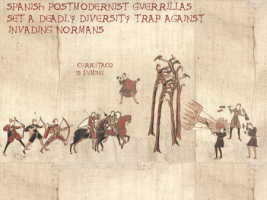 SPANISH POSTMODERNIST GUERRILLAS
SET A DEADLY DIVERSITY TRAP AGAINST
INVADING NORMANS
CURRUTACO
IS JUMING